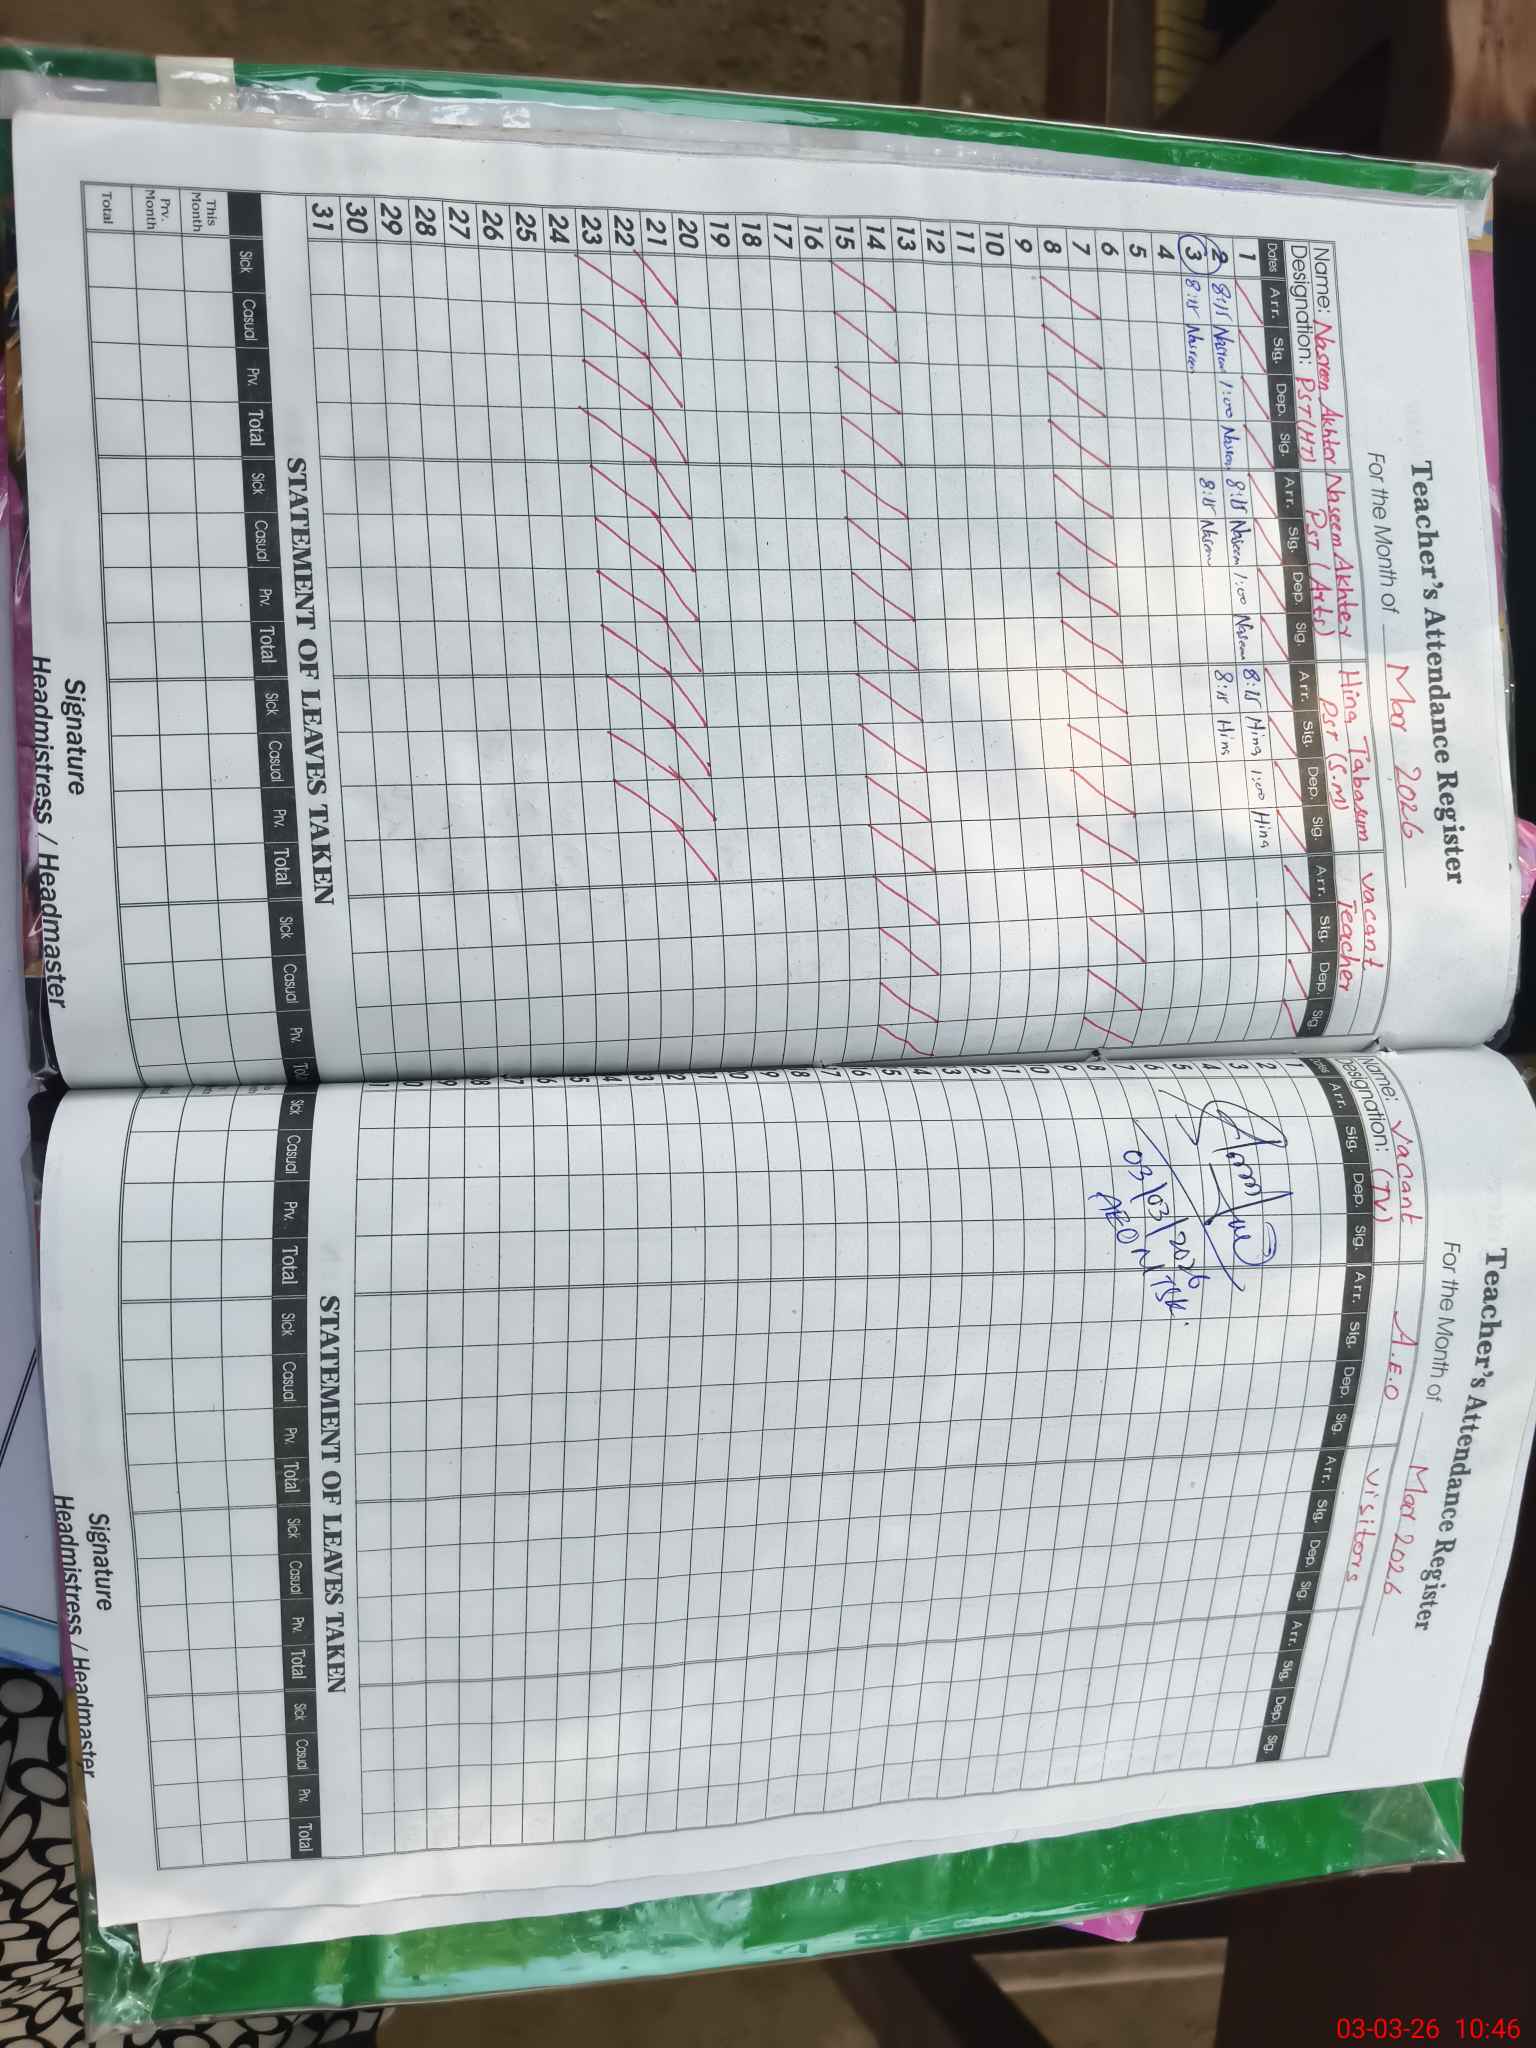 Teacher's Attendance Register
For the Month of Mar 2026
Name: Nasreen Akhter Naseem Akhter Hina Tabasum Vacant
Designation: PST (HT) PST (Arts) PST (S.M) Teacher
Dates Arr. Sig. Dep. Sig. Arr. Sig. Dep. Sig. Arr. Sig. Dep. Sig. Arr. Sig. Dep. Sig.
1
2 8:15 Nasreen 1:00 Nasreen 8:15 Naseem 1:00 Naseem 8:15 Hina 1:00 Hina
3 8:15 Nasreen 8:15 Naseem 8:15 Hina
4
5
6
7
8
9
10
11
12
13
14
15
16
17
18
19
20
21
22
23
24
25
26
27
28
29
30
31
STATEMENT OF LEAVES TAKEN
Sick Casual Prv. Total Sick Casual Prv. Total Sick Casual Prv. Total Sick Casual Prv. Total
This Month
Prv. Month
Total
Signature
Headmistress / Headmaster
Teacher's Attendance Register
For the Month of Mar 2026
Name: Vacant A.E.O Visitors
Designation: (TV)
Dates Arr. Sig. Dep. Sig. Arr. Sig. Dep. Sig. Arr. Sig. Dep. Sig. Arr. Sig. Dep. Sig.
1
2
3
4
5
6
7
8
9
10
11
12
13
14
15
16
17
18
19
20
21
22
23
24
25
26
27
28
29
30
31
03/03/2026
AEO
STATEMENT OF LEAVES TAKEN
Sick Casual Prv. Total Sick Casual Prv. Total Sick Casual Prv. Total Sick Casual Prv. Total
Signature
Headmistress / Headmaster
03-03-26 10:46